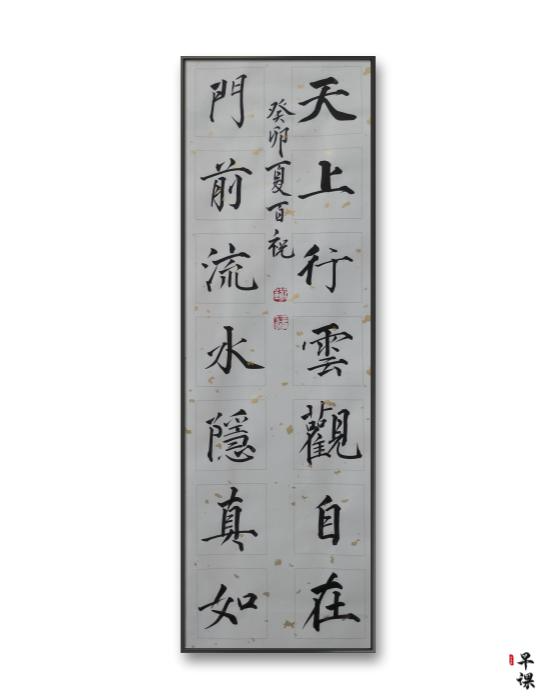 天上行雲觀自在
癸卯夏百祝
門前流水隱真如
早课